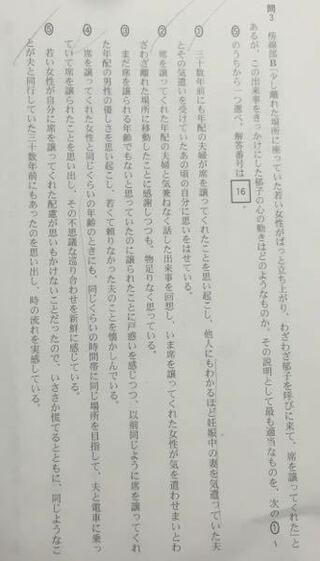 問3 傍線部B「少し離れた場所に座っていた若い女性がぱっと立ち上がり、わざわざ郁子を呼びに来て、席を譲ってくれた」と
あるが、この出来事をきっかけにした郁子の心の動きはどのようなものか。その説明として最も適当なものを、次の①〜
⑤のうちから一つ選べ。解答番号は 16 。
① 三十数年前にも年配の夫婦が席を譲ってくれたことを思い起こし、他人にもわかるほど妊娠中の妻を気遣っていた夫
とその気遣いを受けていたあの頃の自分に思いをはせている。
② 席を譲ってくれた年配の夫婦と気兼ねなく話した出来事を回想し、いま席を譲ってくれた女性が気を遣わせまいとわ
ざわざ離れた場所に移動したことに感謝しつつも、物足りなく思っている。
③ まだ席を譲られる年齢でもないと思っていたのに譲られたことに戸惑いを感じつつ、以前同じように席を譲ってくれ
た年配の男性の優しさを思い起こし、若くて頼りなかった夫のことを懐かしんでいる。
④ 席を譲ってくれた女性と同じくらいの年齢のときにも、同じくらいの時間帯に同じ場所を目指して、夫と電車に乗っ
ていて席を譲られたことを思い出し、その不思議な巡り合わせを新鮮に感じている。
⑤ 若い女性が自分に席を譲ってくれた配慮が思いもかけないことだったので、いささか慌てるとともに、同じようなこ
とが夫と同行していた三十数年前にもあったのを思い出し、時の流れを実感している。